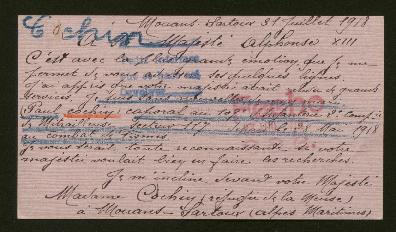 Cochin
Mouans-Sartoux 31 juillet 1918
A Sa Majesté Alphonse XIII
C'est avec la plus grande émotion que je me
permet de vous adresser ces quelques lignes.
J'ai appris que votre majesté avait rendu de grands
services. Je
Paul Cochin, caporal au Infanterie 2e Comp.
de Mitrailleuse Secteur 117 le 28 Mai 1918
au combat
Je vous serai toute reconnaissante si votre
majesté voulait bien en faire les recherches.
Je m'incline devant votre Majesté
Madame Cochin, réfugiée de la Meuse
à Mouans-Sartoux (Alpes Maritimes)